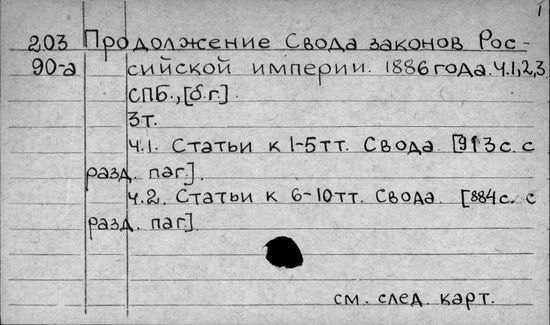 1
203 Продолжение Свода законов Рос-
90-а сийской империи. 1886 года. Ч.1,2,3
СПБ., [б.г.]
3т.
Ч.1. Статьи к 1-5тт. Свода. [913с. с
разд. паг.].
Ч.2. Статьи к 6-10тт. Свода. [884с. с
разд. паг.].
см. след. карт.